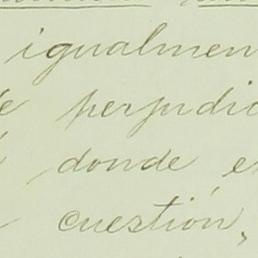 igualmen
perjudic
donde e
cuestión,